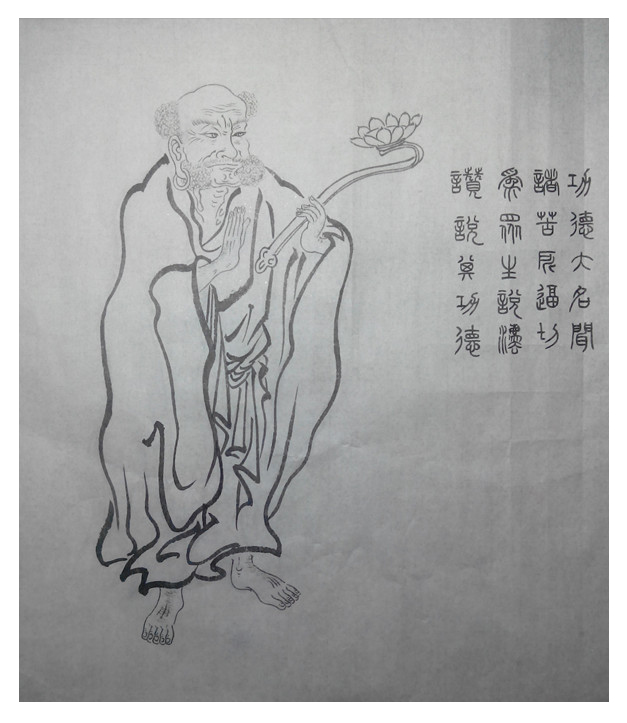 功德大名聞
諸苦所逼切
為眾生說灋
讚說其功德